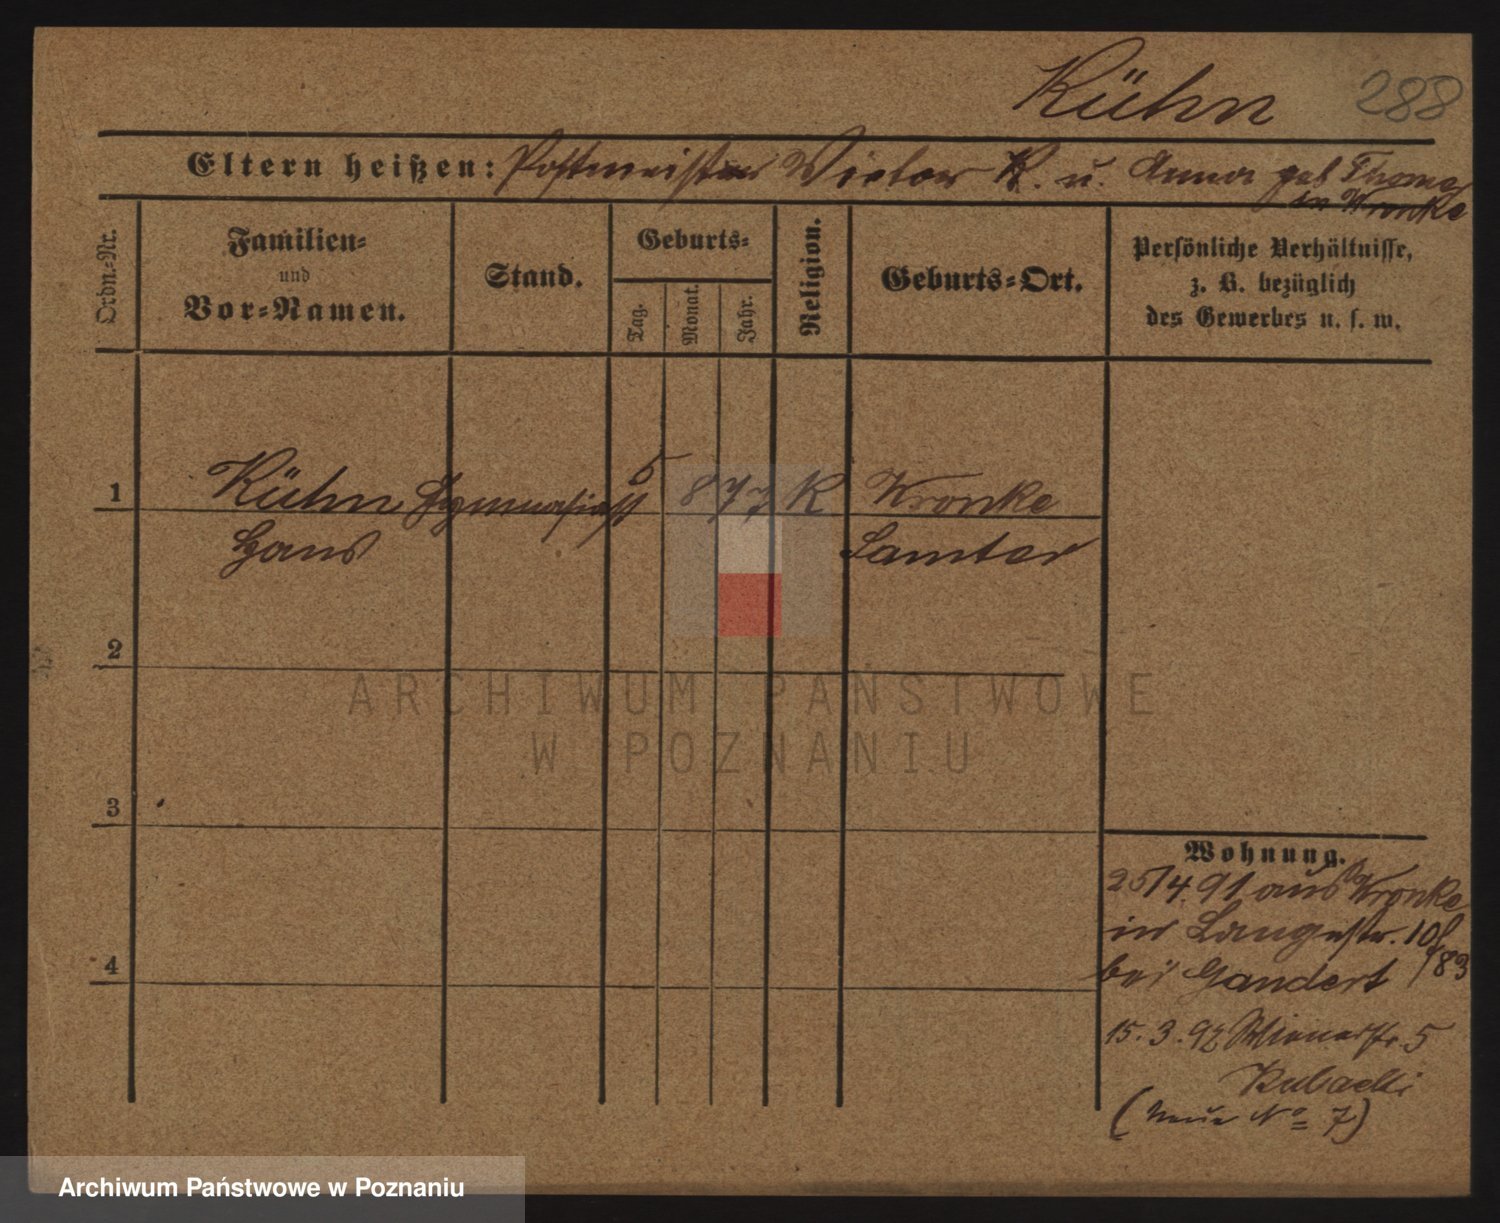 Kühn 288
Eltern heißen: Postmeister Victor K. u. Anna geb Thomas
in Wronke
Ordn=Nr.
Familien=
und
Vor=Namen.
Stand.
Geburts=
Tag.
Monat.
Jahr.
Religion.
Geburts=Ort.
Persönliche Verhältnisse,
z. B. bezüglich
des Gewerbes u. s. w.
1 Kühn Gymnasiast 5 8 77 K Wronke
Hans Samter
2
3
4
Wohnung.
25/4.91 aus Wronke
in Langestr. 10
bei Gandert /83
15.3.92 Wienerstr. 5
Kubacki
(neue No 7)
ARCHIWUM PAŃSTWOWE
W POZNANIU
Archiwum Państwowe w Poznaniu